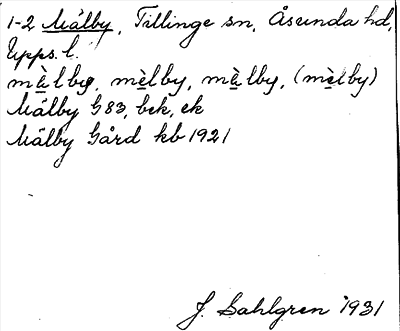 1-2 Målby, Tillinge sn, Åsunda hd,
Upps. l.
mèlby, mèlby, mèlby, (mèlby)
Målby G 83, bek, ek
Målby Gård kb 1921
J. Sahlgren 1931